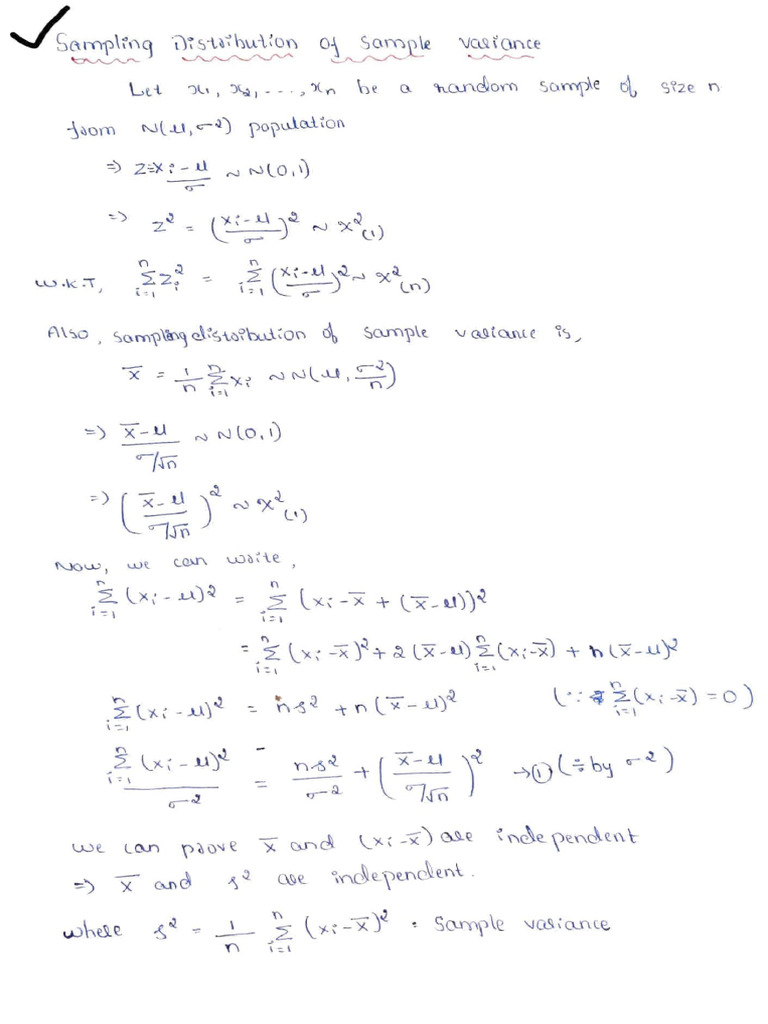 Sampling Distribution of Sample Variance
Let x₁, x₂, ..., xₙ be a random sample of size n
from N(μ, σ²) population
⇒ Z = xᵢ-μ/σ ~ N(0,1)
⇒ Z² = (xᵢ-μ/σ)² ~ χ²(1)
W.K.T, Σⁿᵢ₌₁ Zᵢ² = Σⁿᵢ₌₁ (xᵢ-μ/σ)² ~ χ²(n)
Also, sampling distribution of sample variance is,
x̄ = 1/n Σⁿᵢ₌₁ xᵢ ~ N(μ, σ²/n)
⇒ x̄-μ/σ/√n ~ N(0,1)
⇒ (x̄-μ/σ/√n)² ~ χ²(1)
Now, we can write,
Σⁿᵢ₌₁ (xᵢ-μ)² = Σⁿᵢ₌₁ (xᵢ-x̄ + (x̄-μ))²
= Σⁿᵢ₌₁ (xᵢ-x̄)² + 2(x̄-μ) Σⁿᵢ₌₁ (xᵢ-x̄) + n(x̄-μ)²
Σⁿᵢ₌₁ (xᵢ-μ)² = ns² + n(x̄-μ)² (∵ Σⁿᵢ₌₁ (xᵢ-x̄) = 0)
Σⁿᵢ₌₁ (xᵢ-μ)²/σ² = ns²/σ² + (x̄-μ/σ/√n)² → ① (÷ by σ²)
We can prove x̄ and (xᵢ-x̄) are independent
⇒ x̄ and s² are independent.
where s² = 1/n Σⁿᵢ₌₁ (xᵢ-x̄)² = Sample variance